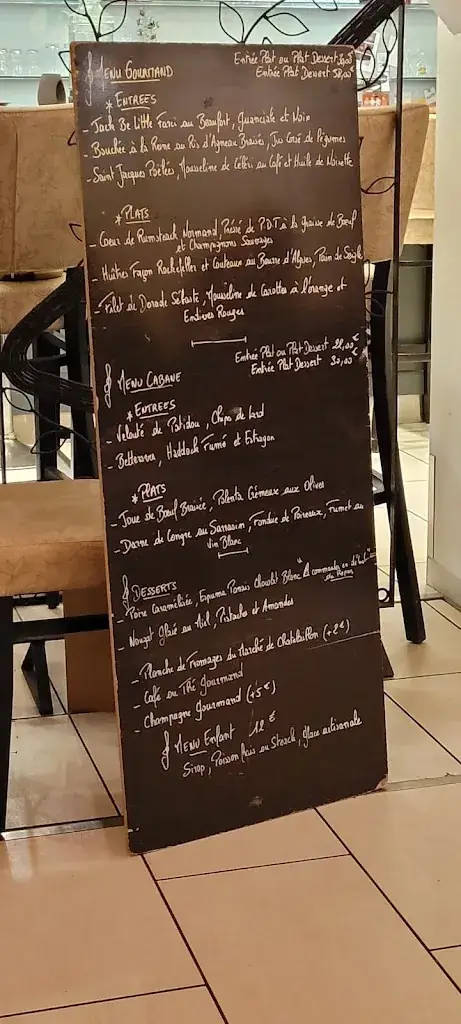 MENU GOURMAND
Entrée Plat ou Plat Dessert
Entrée Plat Dessert 38,00€
* ENTREES
- Jack Be Little Farci au Beaufort, Guanciale et Noix
- Bouchée à la Reine au Ris d'Agneau Braisés, Jus Corsé de Légumes
- Saint Jacques Poêlées, Mousseline de Céleri au Café et Huile de Noisette
* PLATS
- Coeur de Rumsteack Normand, Pressé de P.D.T à la Graisse de Boeuf
et Champignons Sauvages
- Huîtres Façon Rockefeller et Couteaux au Beurre d'Algues, Pain de Seigle
- Filet de Dorade Sébaste, Mousseline de Carottes à l'orange et
Endives Rouges
MENU CABANE
Entrée Plat ou Plat Dessert 22,00€
Entrée Plat Dessert 30,00€
* ENTREES
- Velouté de Patidou, Chips de lard
- Betterave, Haddock Fumé et Estragon
* PLATS
- Joue de Boeuf Braisée, Polenta Crémeuse aux Olives
- Darne de Congre au Sarrasin, Fondue de Poireaux, Fumet au
Vin Blanc
DESSERTS
- Poire Caramélisée, Espuma Panais Chocolat Blanc "A commander en début"
de Repas
- Nougat Glacé au Miel, Pistaches et Amandes
- Planche de Fromages du Marché de Chatelaillon (+2€)
- Café ou Thé Gourmand
- Champagne Gourmand (+5€)
MENU Enfant 12 €
Sirop, Poisson frais ou Steack, glace artisanale